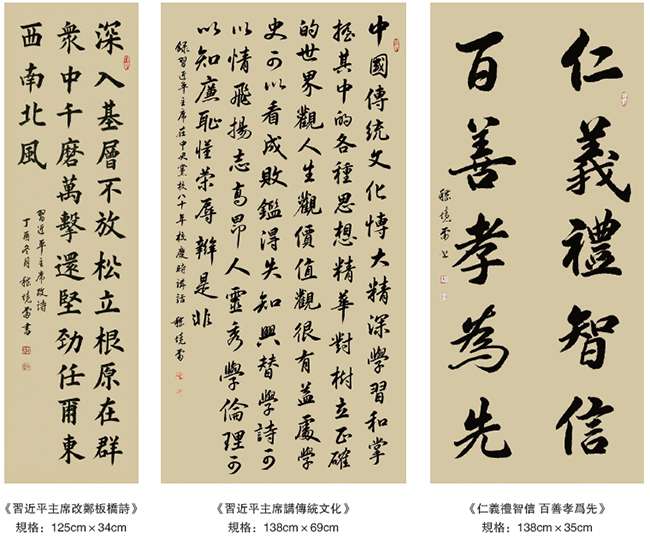 深入基層不放松立根原在群
衆中千磨萬擊還堅勁任爾東
西南北風
習近平主席改詩
丁酉冬月
書
中國傳統文化博大精深學習和掌
握其中的各種思想精華對樹立正確
的世界觀人生觀價值觀很有益處學
史可以看成敗鑑得失知興替學詩可
以情飛揚志高昂人靈秀學倫理可
以知廉恥懂榮辱辨是非
錄習近平主席在中央黨校八十年校慶時講話
仁義禮智信
百善孝為先
《習近平主席改鄭板橋詩》
規格：125cm×34cm
《習近平主席講傳統文化》
規格：138cm×69cm
《仁義禮智信 百善孝爲先》
規格：138cm×35cm